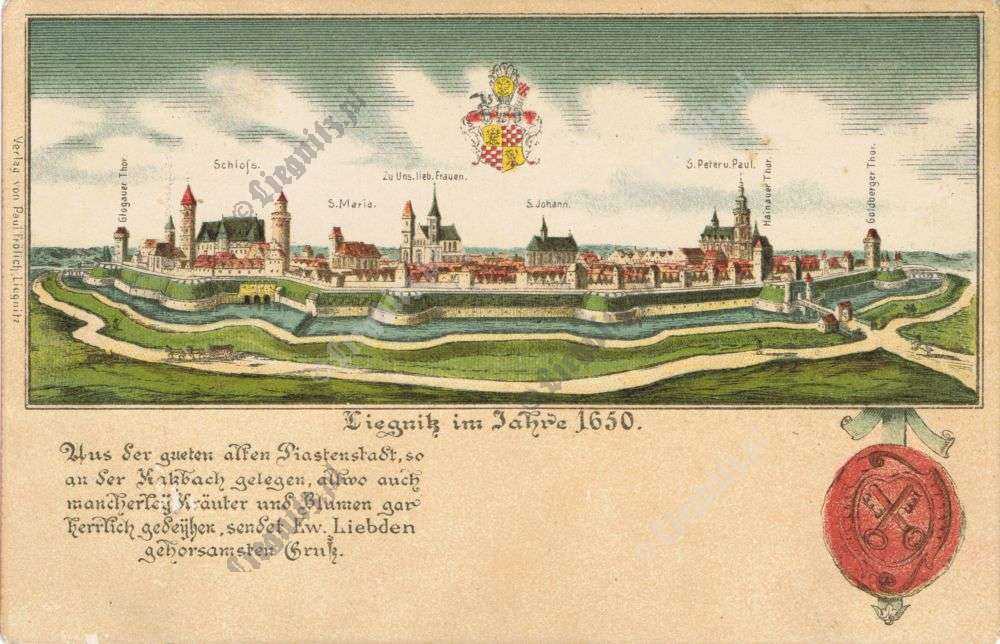 Glogauer Thor
Schloſs.
S. Maria.
Zu Uns. lieb. Frauen.
S. Johann.
S. Peter u. Paul.
Hainauer Thor.
Goldberger Thor.
Verlag von Paul Frölich, Liegnitz
Liegnitz im Jahre 1650.
Aus der gueten alten Piastenstadt, so
an der Katzbach gelegen, allwo auch
mancherley Kräuter und Blumen gar
herrlich gedeÿhen, sendet Ew. Liebden
gehorsamsten Gruß.
© Liegnitz.pl
Liegnitz.pl